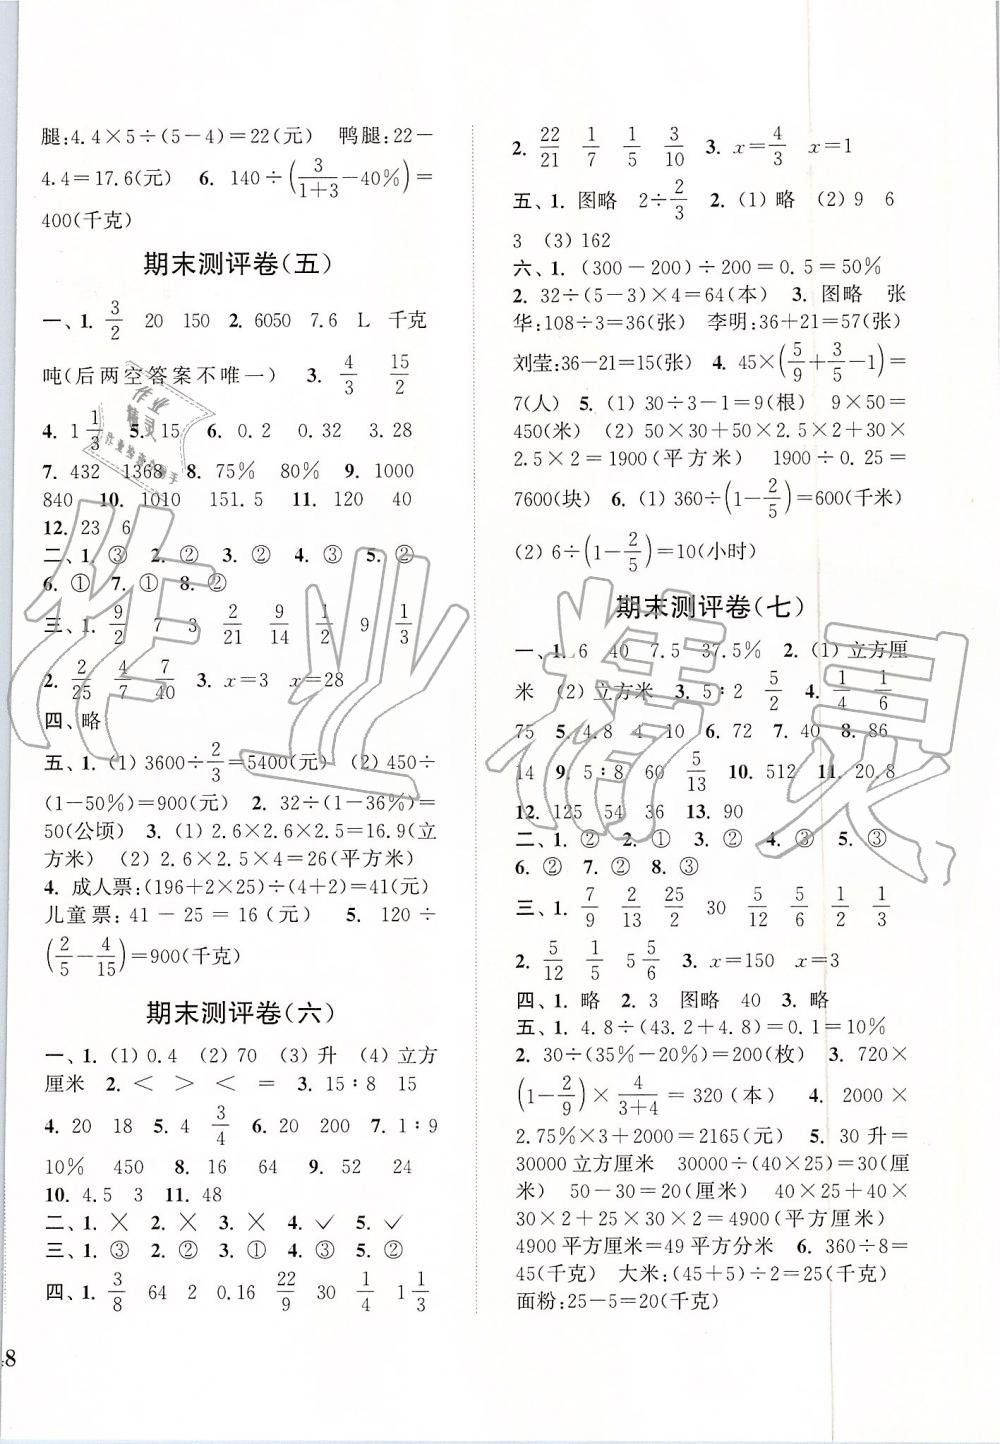 腿:4.4×5÷(5-4)=22(元) 鸭腿:22-
4.4=17.6(元) 6. 140÷(3/(1+3)-40%)=
400(千克)
期末测评卷(五)
一、1. 3/2 20 150 2. 6050 7.6 L 千克
吨(后两空答案不唯一) 3. 4/3 15/2
4. 1 1/3 5. 15 6. 0.2 0.32 3.28
7. 432 1368 8. 75% 80% 9. 1000
840 10. 1010 151.5 11. 120 40
12. 23 6
二、1. ③ 2. ② 3. ② 4. ③ 5. ②
6. ① 7. ① 8. ②
三、1. 9/2 7 3 2/21 9/14 1/2 9 1/3
2. 2/25 4/7 7/40 3. x=3 x=28
四、略
五、1. (1)3600÷2/3=5400(元) (2)450÷
(1-50%)=900(元) 2. 32÷(1-36%)=
50(公顷) 3. (1)2.6×2.6×2.5=16.9(立
方米) (2)2.6×2.5×4=26(平方米)
4. 成人票:(196+2×25)÷(4+2)=41(元)
儿童票:41-25=16(元) 5. 120÷
(2/5-4/15)=900(千克)
期末测评卷(六)
一、1. (1)0.4 (2)70 (3)升 (4)立方
厘米 2. < > < = 3. 15∶8 15
4. 20 18 5. 4 3/4 6. 20 200 7. 1∶9
10% 450 8. 16 64 9. 52 24
10. 4.5 3 11. 48
二、1. × 2. × 3. × 4. ✓ 5. ✓
三、1. ③ 2. ② 3. ① 4. ③ 5. ②
四、1. 3/8 64 2 0.16 22/9 30 1/4 1 1/3
8
2. 22/21 1/7 1/5 3/10 3. x=4/3 x=1
五、1. 图略 2÷2/3 2. (1)略 (2)9 6
3 (3)162
六、1. (300-200)÷200=0.5=50%
2. 32÷(5-3)×4=64(本) 3. 图略 张
华:108÷3=36(张) 李明:36+21=57(张)
刘莹:36-21=15(张) 4. 45×(5/9+3/5-1)=
7(人) 5. (1)30÷3-1=9(根) 9×50=
450(米) (2)50×30+50×2.5×2+30×
2.5×2=1900(平方米) 1900÷0.25=
7600(块) 6. (1)360÷(1-2/5)=600(千米)
(2)6÷(1-2/5)=10(小时)
期末测评卷(七)
一、1. 6 40 7.5 37.5% 2. (1)立方厘
米 (2)立方米 3. 5∶2 5/2 4. 1/4 1/6
75 5. 4.8 4 10 6. 72 7. 40 8. 86
14 9. 5∶8 60 5/13 10. 512 11. 20.8
12. 125 54 36 13. 90
二、1. ② 2. ① 3. ② 4. ③ 5. ③
6. ② 7. ② 8. ③
三、1. 7/9 2/13 25/2 30 5/12 5/6 1/2 1/3
2. 5/12 1/5 5 5/6 3. x=150 x=3
四、1. 略 2. 3 图略 40 3. 略
五、1. 4.8÷(43.2+4.8)=0.1=10%
2. 30÷(35%-20%)=200(枚) 3. 720×
(1-2/9)×4/(3+4)=320(本) 4. 2000×
2.75%×3+2000=2165(元) 5. 30升=
30000立方厘米 30000÷(40×25)=30(厘
米) 50-30=20(厘米) 40×25+40×
30×2+25×30×2=4900(平方厘米)
4900平方厘米=49平方分米 6. 360÷8=
45(千克) 大米:(45+5)÷2=25(千克)
面粉:25-5=20(千克)
作业精灵
作业
精灵